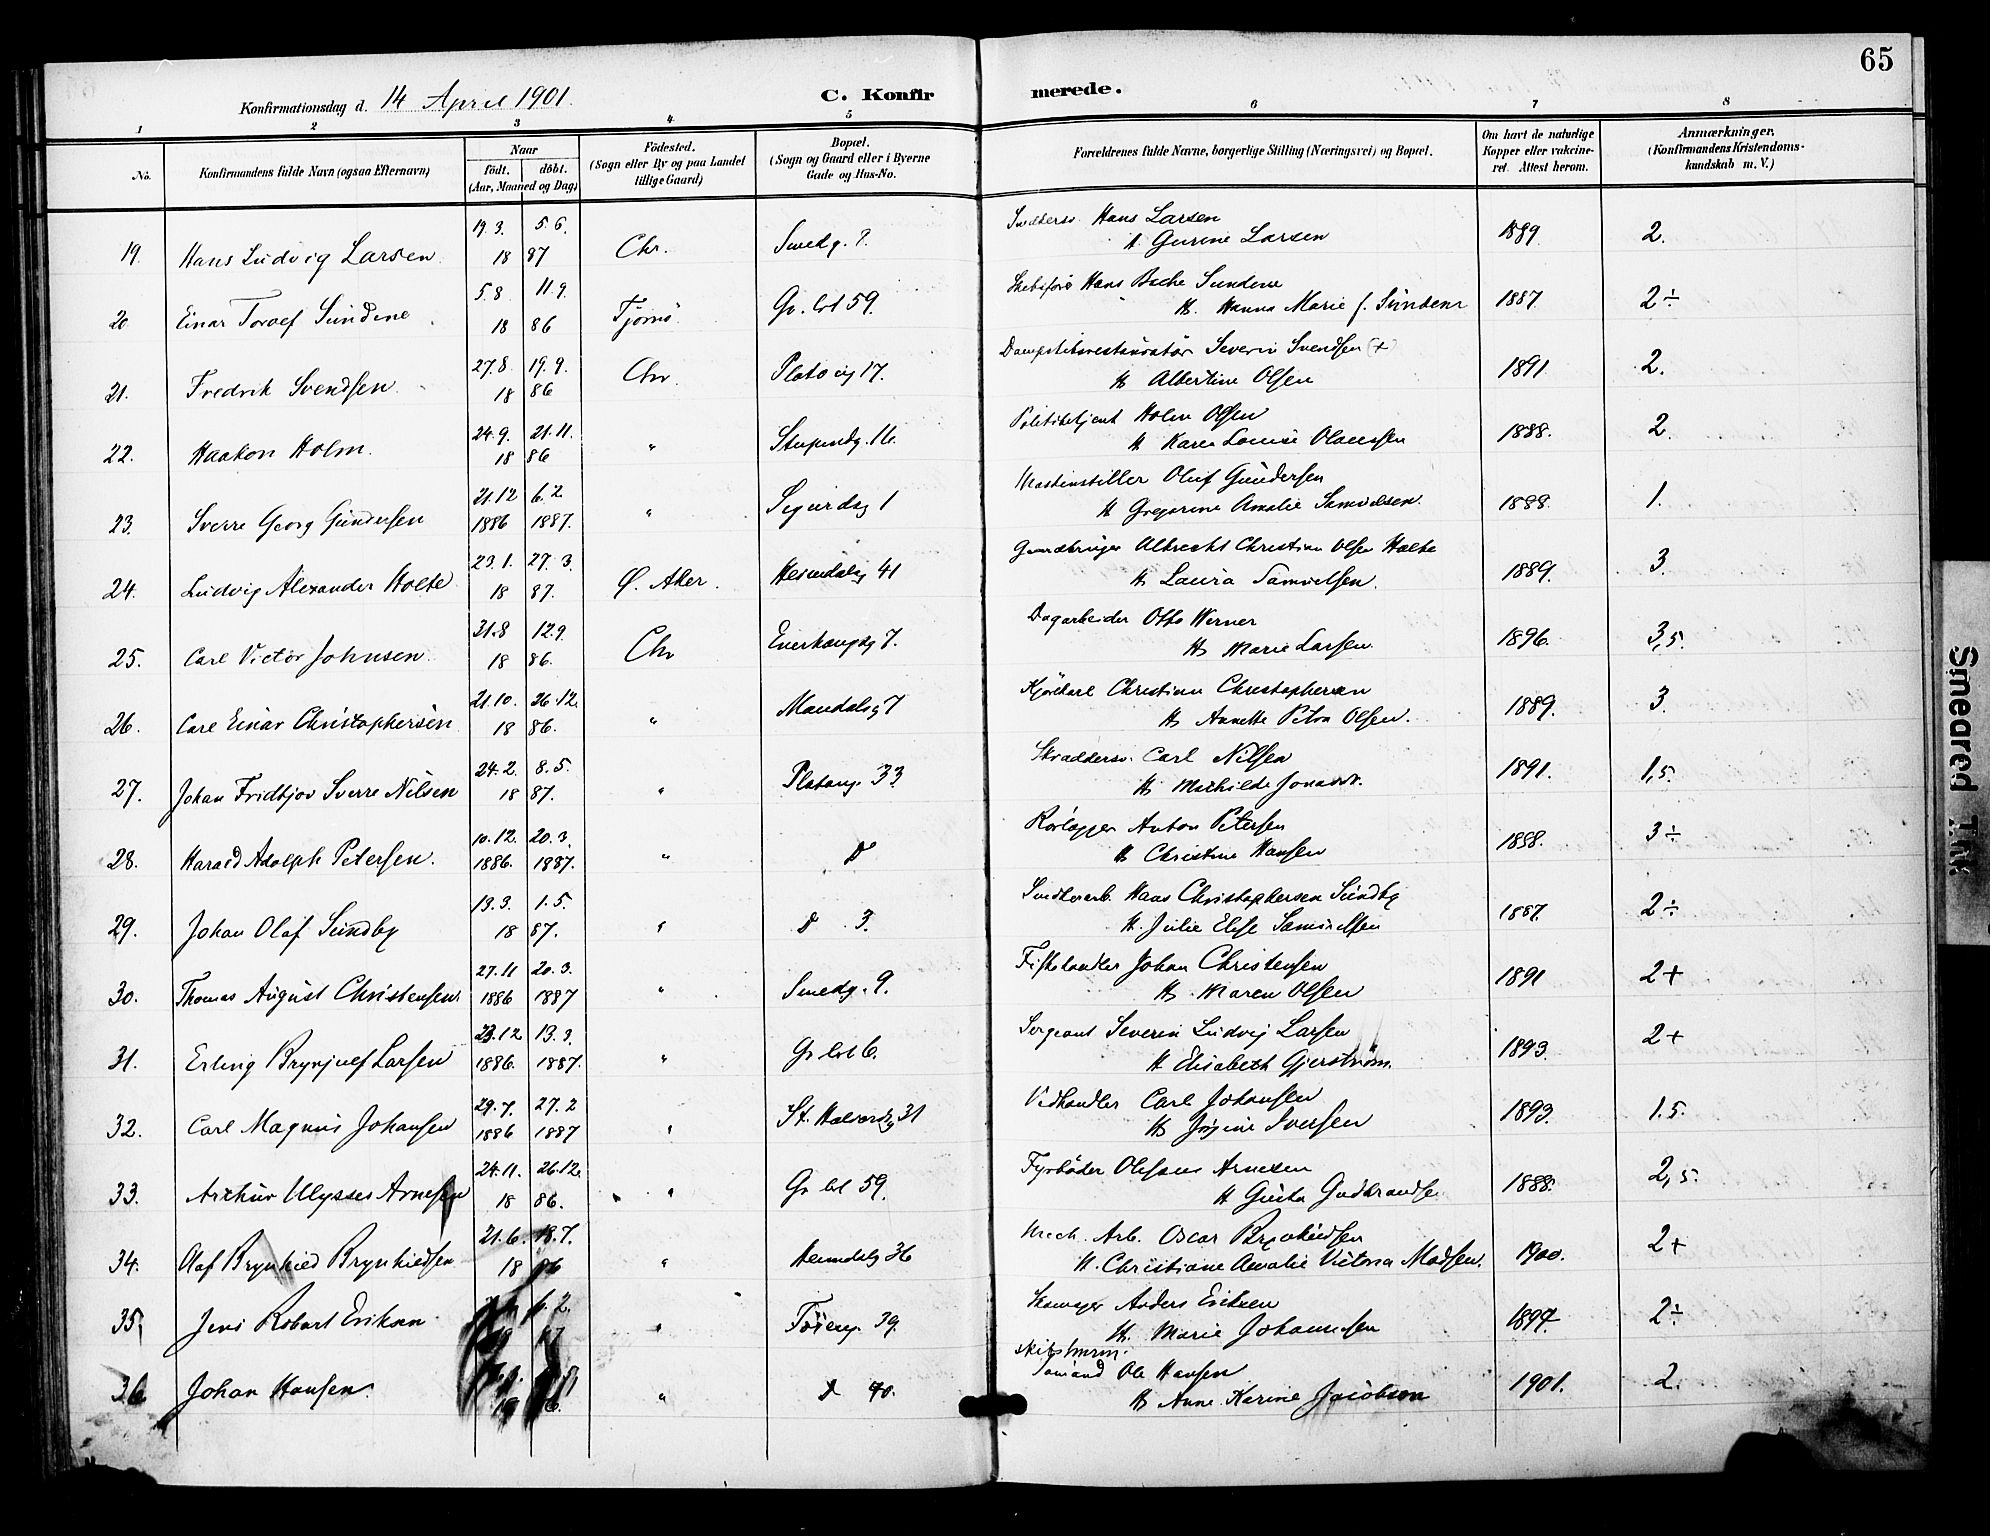 65
Konfirmationsdag d. 14 April 1901. C. Konfirmerede.
1 2 3 4 5 6 7 8
No. Konfirmandens fulde Navn (ogsaa Efternavn) Naar födt. döbt. (Aar, Maaned og Dag) Födested. (Sogn eller By og paa Landet tillige Gaard) Bopæl. (Sogn og Gaard eller i Byerne Gade og Hus-No. Forældrenes fulde Navne, borgerlige Stilling (Næringsvei) og Bopæl. Om havt de naturlige Kopper eller vakcineret. Attest herom. Anmærkninger. (Konfirmandens Kristendomskundskab m. V.)
19. Hans Ludvig Larsen 19.3. 5.6. 18 87 Chr. Smedg. 7. Hans Larsen
H Gurine Larsen 1889. 2.
20 Einar Toralf Sundene 5.8 11.9. 18 86 Tjømø Gr. lvl 59. Hans Bache Sundene
H. Hanna Marie f. Sundene 1887. 2÷
21. Fredrik Svendsen 27.8 19.9. 18 86 Chr. Platoug 17. Severin Svendsen (+)
H Albertine Olsen 1891 2.
22. Haakon Holm. 24.9. 21.11. 18 86 " 16. Politibetjent Holm Olsen
H Karen Louise Olaussen 1888. 2.
23. Sverre Georg Gundersen 21.12 6.2 1886 1887. " Sigurdsg 1 Maskinstiller Oluf Gundersen
H Gregorine Amalie Samuelsen. 1888. 1.
24. Ludvig Alexander Holte 27.3. 18 87. Ø. Aker. Heimdalsg 41 Albrecht Christian Olsen Holte
H Laura Samuelsen. 1889. 3.
25. Carl Victor Johnsen 31.8 12.9 18 86. Chr Enerhaugsg 7. Dagarbeider Otto Werner
H Marie Larsen. 1896. 3,5.
26. Carl Einar Christophersen 21.10. 26.12. 18 86. " Mandalsg 7 Kjørekarl Christian Christophersen
H Annette Petra Olsen. 1889. 3.
27. Johan Fridtjov Sverre Nilsen 24.2. 8.5. 18 87. " Platoug. 33 Skrædders. Carl Nilsen
H Mathilde 1891. 1,5.
28. Harald Adolph Petersen. 10.12. 20.3. 1886. 1887. " D Rørlægger Anton Petersen
H Christine Hansen 1888. 3÷
29. Johan Olaf Sundby 13.3. 1.5. 18 87. " D 3. Hans Christophersen Sundby
H. Julie Elise Samuelsen 1887. 2÷
30. Thomas August Christensen. 27.11 20.3. 1886 1887 " Smedg. 9. Fiskehandler Johan Christensen
H. Maren Olsen 1891 2+
31. Erling Brynjulf Larsen 23.12 13.3. 1886. 1887. " Gr lvl 6. Sergeant Severin Ludvig Larsen
H Elisabeth Gjerstrøm. 1893. 2+
32. Carl Magnus Johansen 29.7. 27.2 1886 1887 " St. Halvardsg 31 Vedhandler Carl Johansen
H Iversen 1893. 1.5.
33. Arthur Ulysses Arnesen 24.11. 26.12. 18 86. " Gr lvl 59. Fyrbøder Arnesen
H Gusta Gudbrandsen 1888. 2,5.
34. Olaf Brynhild Brynhildsen 21.6. 18.7. 18 86 " Heimdalsg 36 Mech. Arb. Oscar Brynhildsen
H. Christiane Amalie Victoria Madsen. 1900. 2+
35. Jens Robert Eriksen " Tøieng. 39. Skomager Anders Eriksen
H. Marie Johannesen 2÷
36 Johan Hansen. " D 40. Sømand Ole Hansen
H Anne Karine Jacobsen 1901. 2.
Smeared Ink